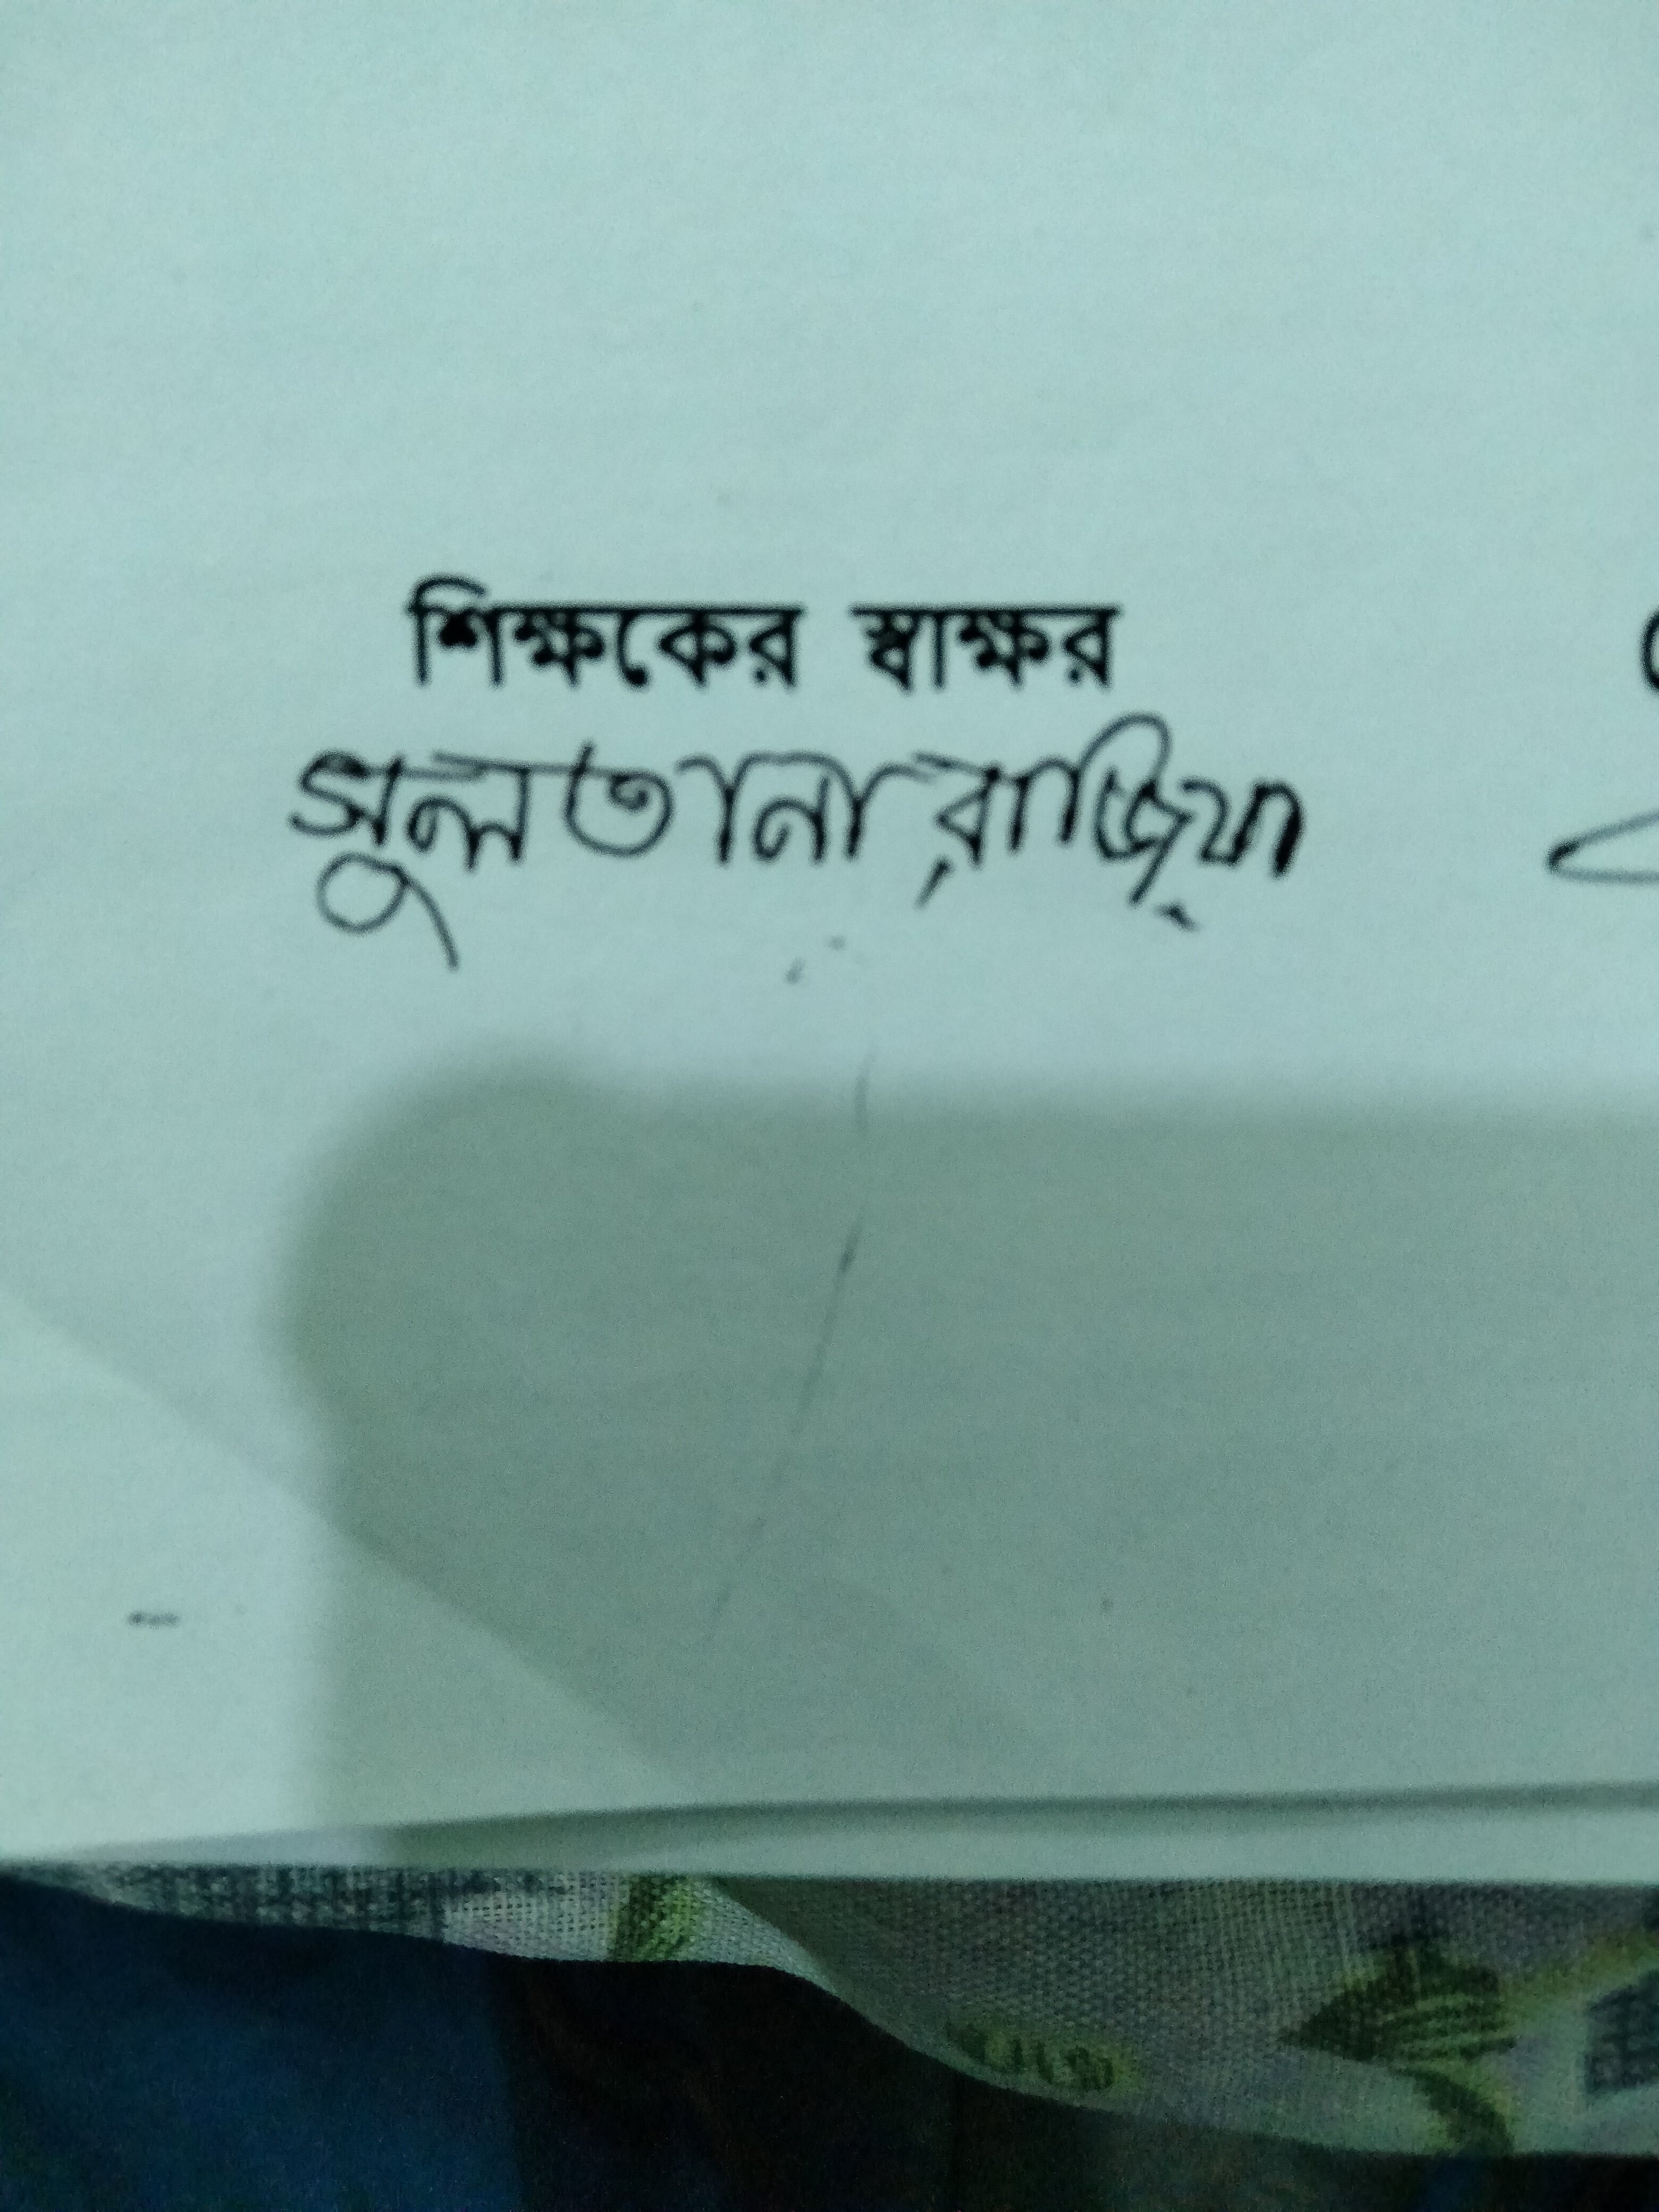 শিক্ষকের স্বাক্ষর
সুলতানা রাজিয়া